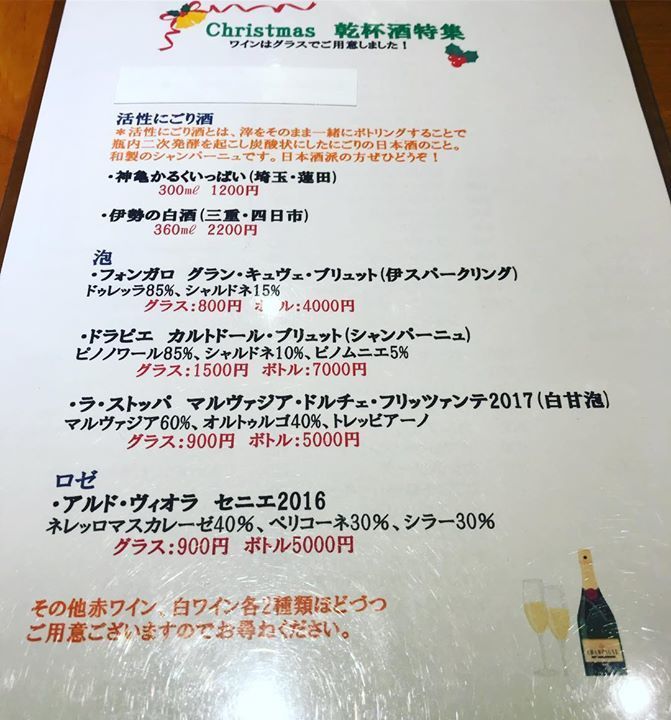 Christmas 乾杯酒特集
ワインはグラスでご用意しました！
活性にごり酒
＊活性にごり酒とは、滓をそのまま一緒にボトリングすることで
瓶内二次発酵を起こし炭酸状にしたにごりの日本酒のこと。
和製のシャンパーニュです。日本酒派の方ぜひどうぞ！
・神亀かるくいっぱい(埼玉・蓮田)
300㎖ 1200円
・伊勢の白酒(三重・四日市)
360㎖ 2200円
泡
・フォンガロ グラン・キュヴェ・ブリュット(伊スパークリング)
ドゥレッラ85%、シャルドネ15%
グラス：800円 ボトル：4000円
・ドラピエ カルトドール・ブリュット(シャンパーニュ)
ピノノワール85%、シャルドネ10%、ピノムニエ5%
グラス：1500円 ボトル：7000円
・ラ・ストッパ マルヴァジア・ドルチェ・フリッツァンテ2017(白甘泡)
マルヴァジア60%、オルトゥルゴ40%、トレッビアーノ
グラス：900円 ボトル：5000円
ロゼ
・アルド・ヴィオラ セニエ2016
ネレッロマスカレーゼ40%、ペリコーネ30%、シラー30%
グラス：900円 ボトル5000円
その他赤ワイン、白ワイン各2種類ほどづつ
ご用意ございますのでお尋ねください。
CHAMPAGNE